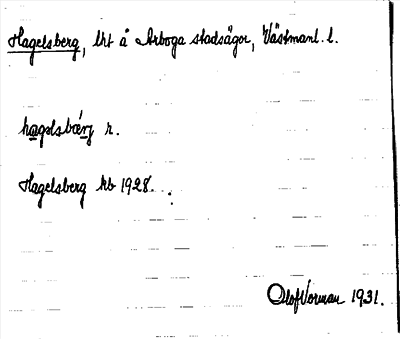 Hagelsberg, lht å Arboga stadsägor, Västmanl. l.
hagelsbærj r.
Hagelsberg kb 1928.
Olof Vorman 1931.